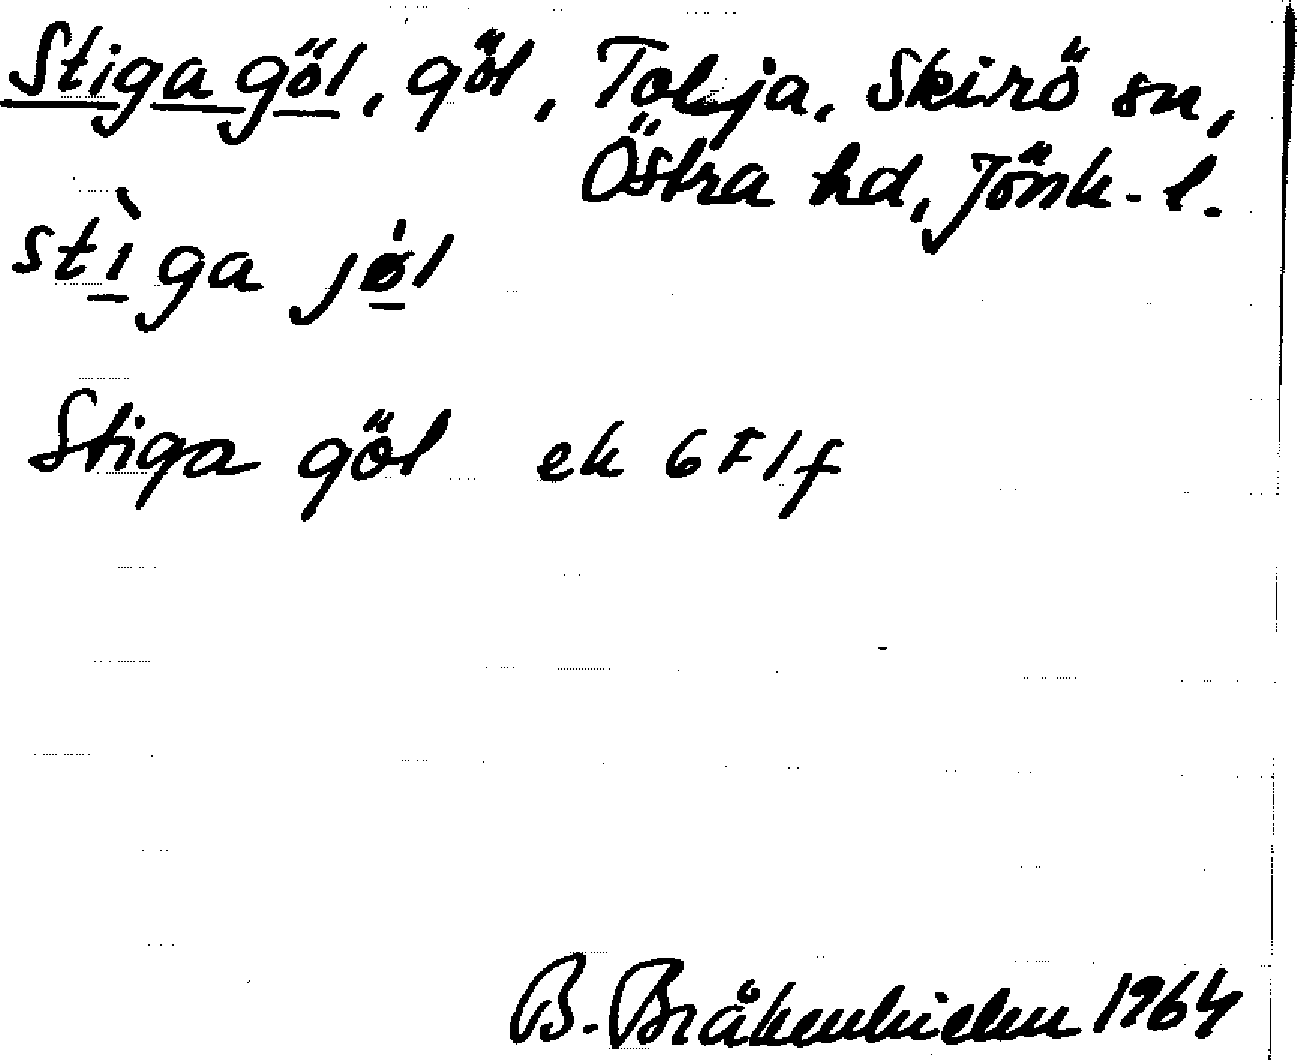 Stiga göl, göl, Tolja, Skirö sn,
Östra hd, Jönk. l.
stìga jøl
Stiga göl ek 6F1f
B. Bråkenhielm 1964